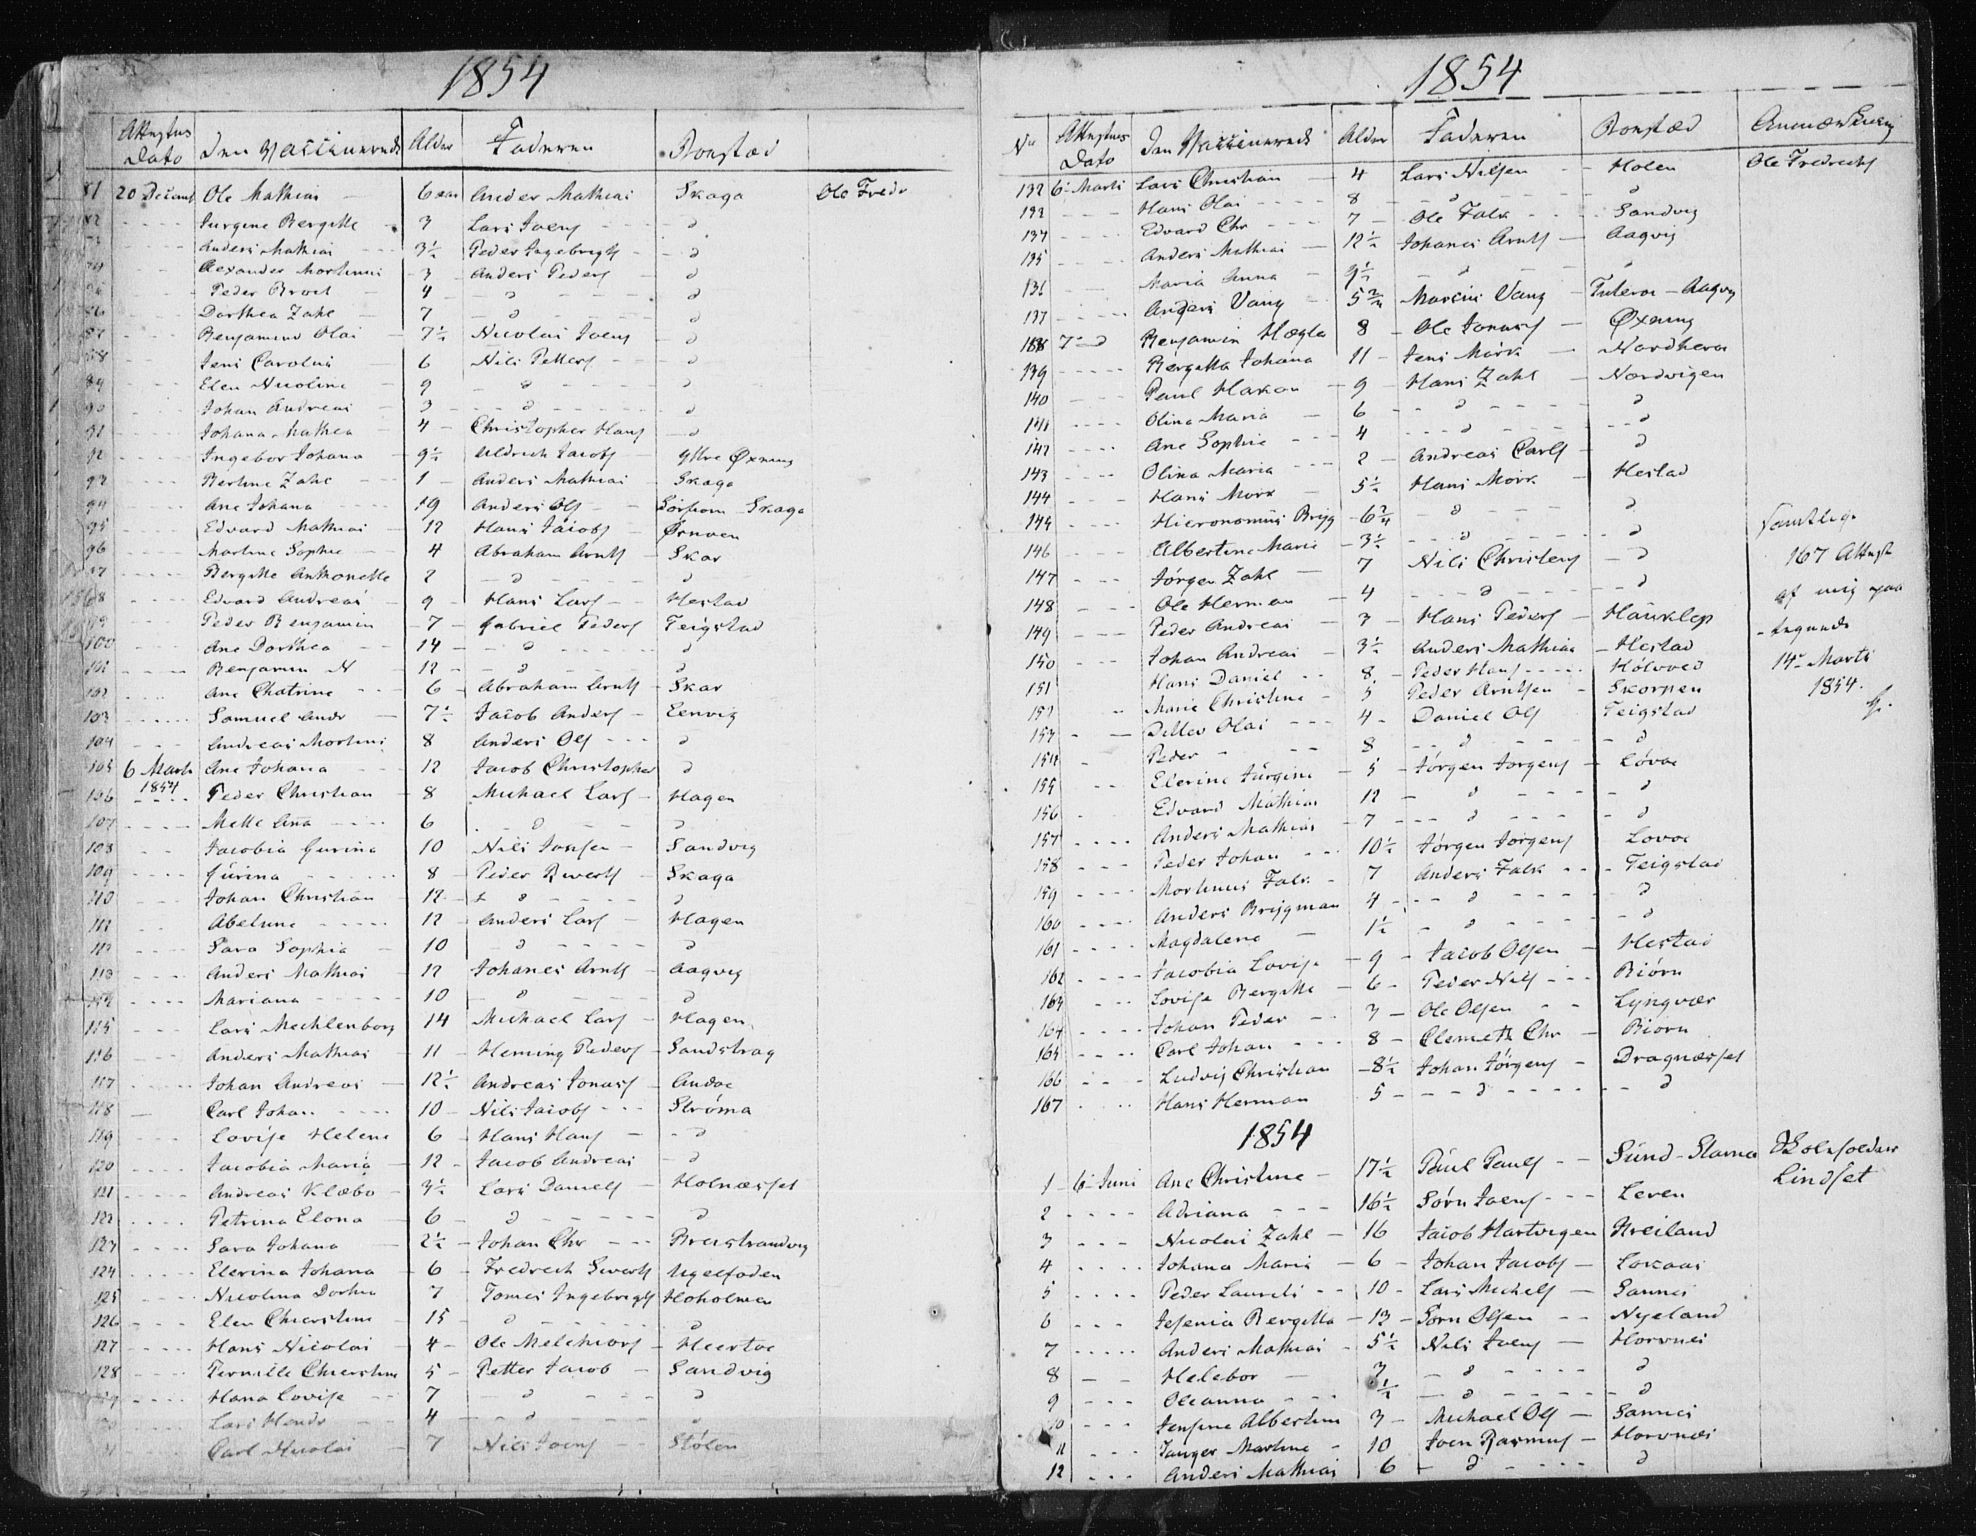 1854
Attestens Dato Den Vaccinerede Alder Faderen Bopæl
81 20 Decemb Ole Mathias 6 aar Ander Mathias Skaga Ole Fredr
82 Jurgine Bergitte 3 Lars Joens d
Anders Mathias 3½ Peder Ingebrigts d
Alexander Mortinus 3 Anders Peders d
Peder Broch 4 d d
86 Dorthea Zahl 7 d d
87 Benjamind Olai 7½ Nicolai Joens d
88 Jens Carolus 6 Nils Petters d
89 Elen Nicoline 9 d d
90 Johan Andreas 3 d d
91 Johana Mathea 4 Christopher Hans d
92 Ingebor Johana 9½ Uldrich Jacobs Yttre Øxning
93 Berhine Zahl 1 Anders Mathias Skaga
94 Ane Johana 19 Anders Ols Skaga
95 Edvard Mathias 12 Hans Jacobs Ørnven
96 Martine Sophie 4 Abraham Arnts Skar
97 Bergitte Anthonette 2 d d
98 Edvard Andreas 9 Hans Lars Hestad
99 Peder Benjamin 7 Gabriel Peders Teigstad
100 Ane Dorthea 14 d d
101 Benjamin N 12 d d
102 Ane Chatrine 6 Abraham Arnts Skar
103 Samuel Andr 7½ Jacob Anders Eenvig
104 Andreas Mortens 8 Anders Ols d
105 6 Marti 1854 Ane Johana 12 Jacob Christopher d
106 Peder Christian 8 Michael Lars Hagen
107 Mette Ana 6 d d
108 Jacobia Gurina 10 Nils Jonsen Sandvig
109 Gurina 8 Peder Sverts Skaga
110 Johan Christian 12 d d
111 Abelune 12 Anders Lars Hagen
112 Sara Sophia 10 d d
113 Anders Mathias 12 Johanes Arnts Aagvig
114 Mariana 10 d d
115 Lars Mechlenborg 14 Michael Lars Hagen
116 Anders Mathias 11 Heming Peders Sandstrag
117 Johan Andreas 12½ Andreas Jonas Andoe
118 Carl Johan 10 Nils Jacobs Strøma
119 Lovise Helene 6 Hans Hans d
120 Jacobia Maria 12 Jacob Andreas d
121 Andreas Klæbo 3½ Lars Daniels Holnæsset
122 Petrina Elona 6 d d
123 Sara Johana 2½ Johan Chr Breistrandvig
124 Elerina Johana 6 Fredrich Sverts Ugelfoden
125 Nicolina Dorthea 7 Tomes Ingebrigts Hoholmen
126 Elen Chierstine 15 d d
127 Hans Nicolai 4 Ole Melchiors Heertoe
128 Pernille Chierstine 5 Petter Jacob Sandvig
129 Hana Lovise 7 d d
130 Lars Hendr 4 d d
131 Carl Nicolai 7 Nils Joens Stølen
1854
No Attestens Dato Den Vaccinerede Alder Faderen Bopæl Anmærkning
132 6 Marti Lars Christian 4 Lars Nilsen Holen Ole Fredrechs
133 Hans Olai 8 d d
134 Edvard Chr 7 Ole Falk Sandvig
135 Anders Mathias 12½ Johanes Arnts Aagvig
136 Maria Anna 9½ d d
137 Anders Vang Marcius Vang Aagvig
138 7 d Benjamin Hegla 8 Ole Jonas Øxning
139 Bergitta Johana 11 Jens Mørk Nordheroe
140 Paul Hakon 9 Hans Zahl Nordvigen
141 Olina Maria 6 d d
142 Ane Sophie 4 d d
143 Olina Maria 2 Andreas Carls d
144 Hans Mørk 5½ Hans Mørk Hestad
144 Hieronomus Brygg d d
146 Albertine Marie 3½ d d
147 Jørgen Zahl 7 Nils Christens d
148 Ole Herman 4 d d
149 Peder Andreas 3 Hans Peders Hauklep
150 Johan Andreas 3½ Anders Mathias Hestad
151 Hans Daniel 8 Peder Hans Holvved
152 Marie Christine 5 Peder Arntsen Skorpen
153 Ditlev Olai 4 Daniel Ols Teigstad
154 Peder 8 d d
155 Elerine Jürgine 5 Jørgen Jørgens Lovoe
156 Edvard Mathias 12 d d
157 Anders Mathias 7 d d
158 Peder Johan 10½ Jørgen Jørgens Lovoe
159 Mortinus Falk 7 Anders Falk Teigstad
160 Anders Bryggman 4 d d
161 Magdalene 1½ d d
162 Jacobia Lovise 9 Jacob Olsen Hestad
163 Lovise Bergitte 6 Peder Nils Biørn
164 Johan Peder 3 Ole Olsen Lyngvær
165 Carl Johan 8 Clemets Chr Biørn
166 Ludvig Christian 8½ Johan Jørgens Dragnæsset
167 Hans Herman 5 d d
Samtlige
167 Attest
af mig paa
tegnede
14 Marti
1854.
G.
1854
1 6 Juni Ane Christine 17½ Paul Pauls Sund - Stamæ Skoleholder
2 Adriana 16½ Sørn Joens Leren Lindset
3 Nicolai Zahl 16 Jacob Hartvigen Hreiland
4 Johana Maria 6 Johan Jacobs Lokaas
5 Peder Laurits 10 Lars Michels Sannes
6 Jesenia Bergitta 13 Sørn Olsen Nyeland
7 Anders Mathias 5½ Nils Joens Horvnes
8 Helebor 3 d d
9 Oleanna ½ d d
10 Jensine Albertine 3 Michael Ols Sannes
11 Janger Martine 10 Joen Rasmus Horvnæs
12 Anders Mathias 6 d d